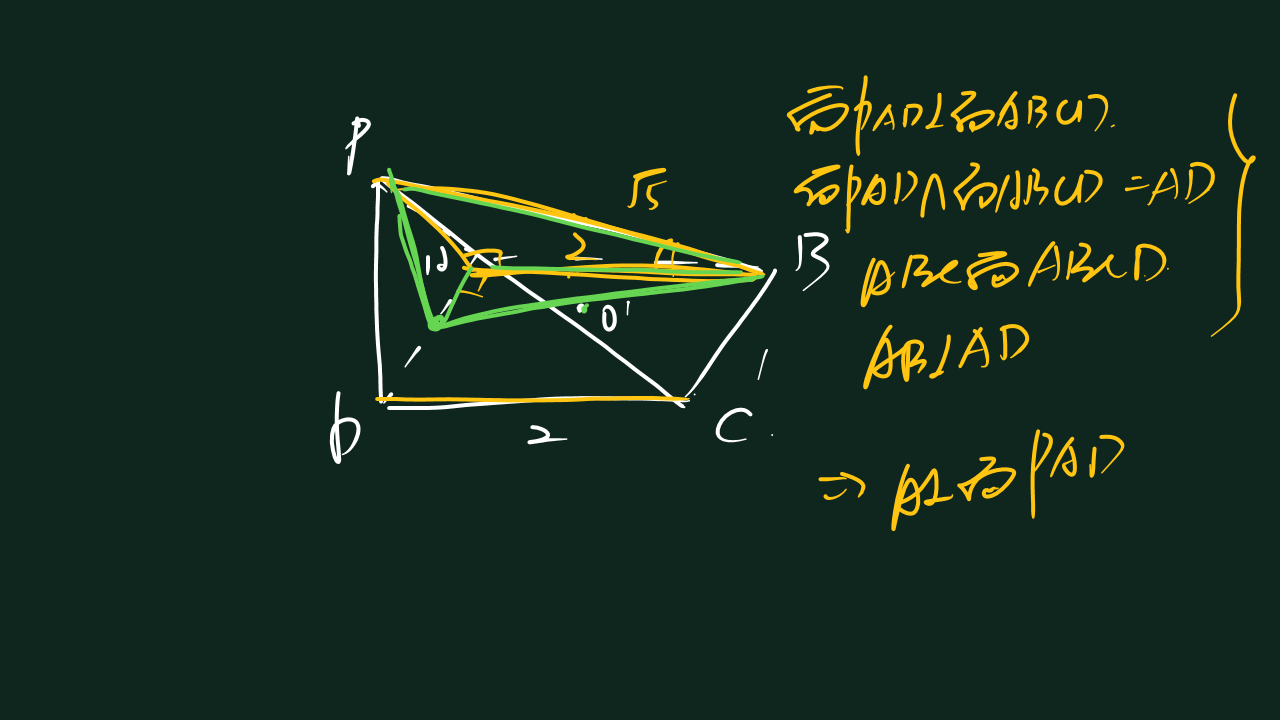 P
√5
B
2
1
O
1
D
2
C
面PAD⊥面ABCD.
面PAD∩面ABCD=AD
AB⊂面ABCD.
AB⊥AD
⇒ A⊥面PAD